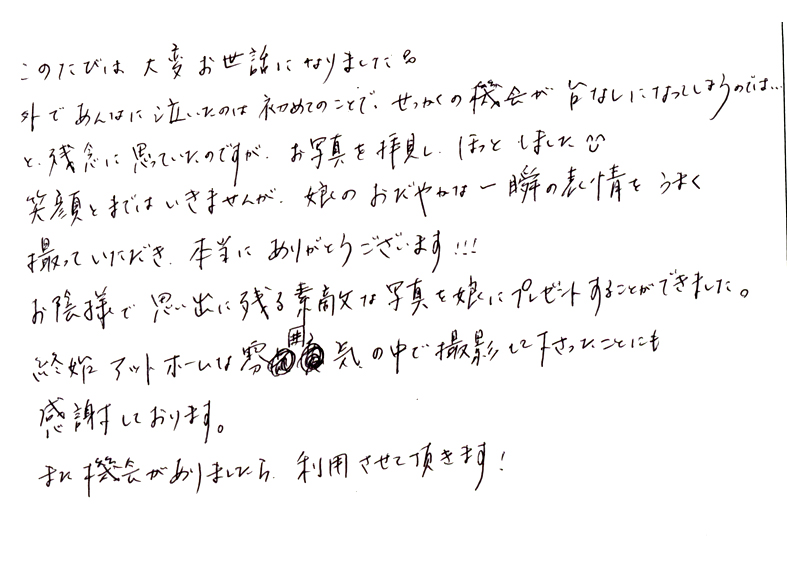 このたびは 大変お世話になりました。
外であんなに泣いたのは初めてのことで、せっかくの機会が台なしになってしまうのでは…
と、残念に思っていたのですが、お写真を拝見し、ほっとしました
笑顔とまではいきませんが、娘のおだやかな一瞬の表情をうまく
撮っていただき、本当にありがとうございます!!!
お陰様で思い出に残る素敵な写真を娘にプレゼントすることができました。
終始アットホームな雰囲気の中で撮影して下さったことにも
感謝しております。
また機会がありましたら、利用させて頂きます!